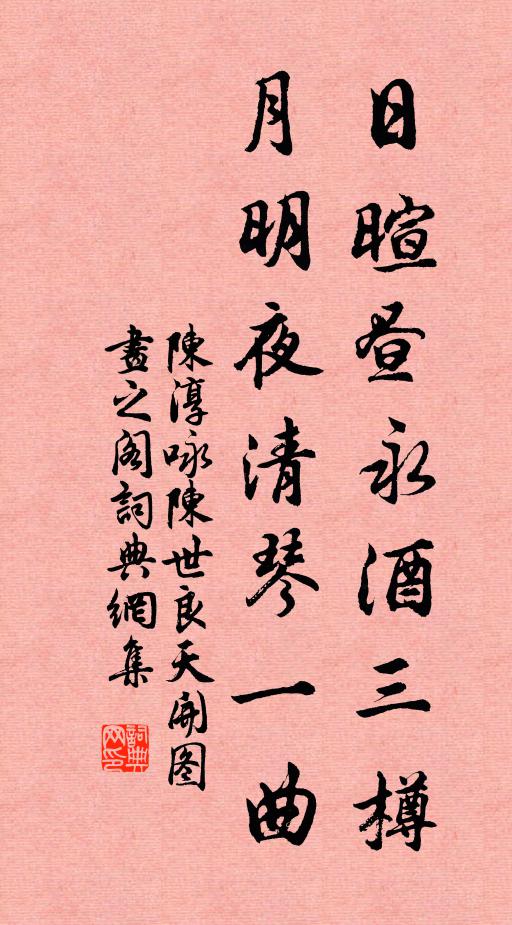 日暄昼永酒三樽
月明夜清琴一曲
陳淳咏陳世良天開图
畫之阁詞典網集
詞典网印